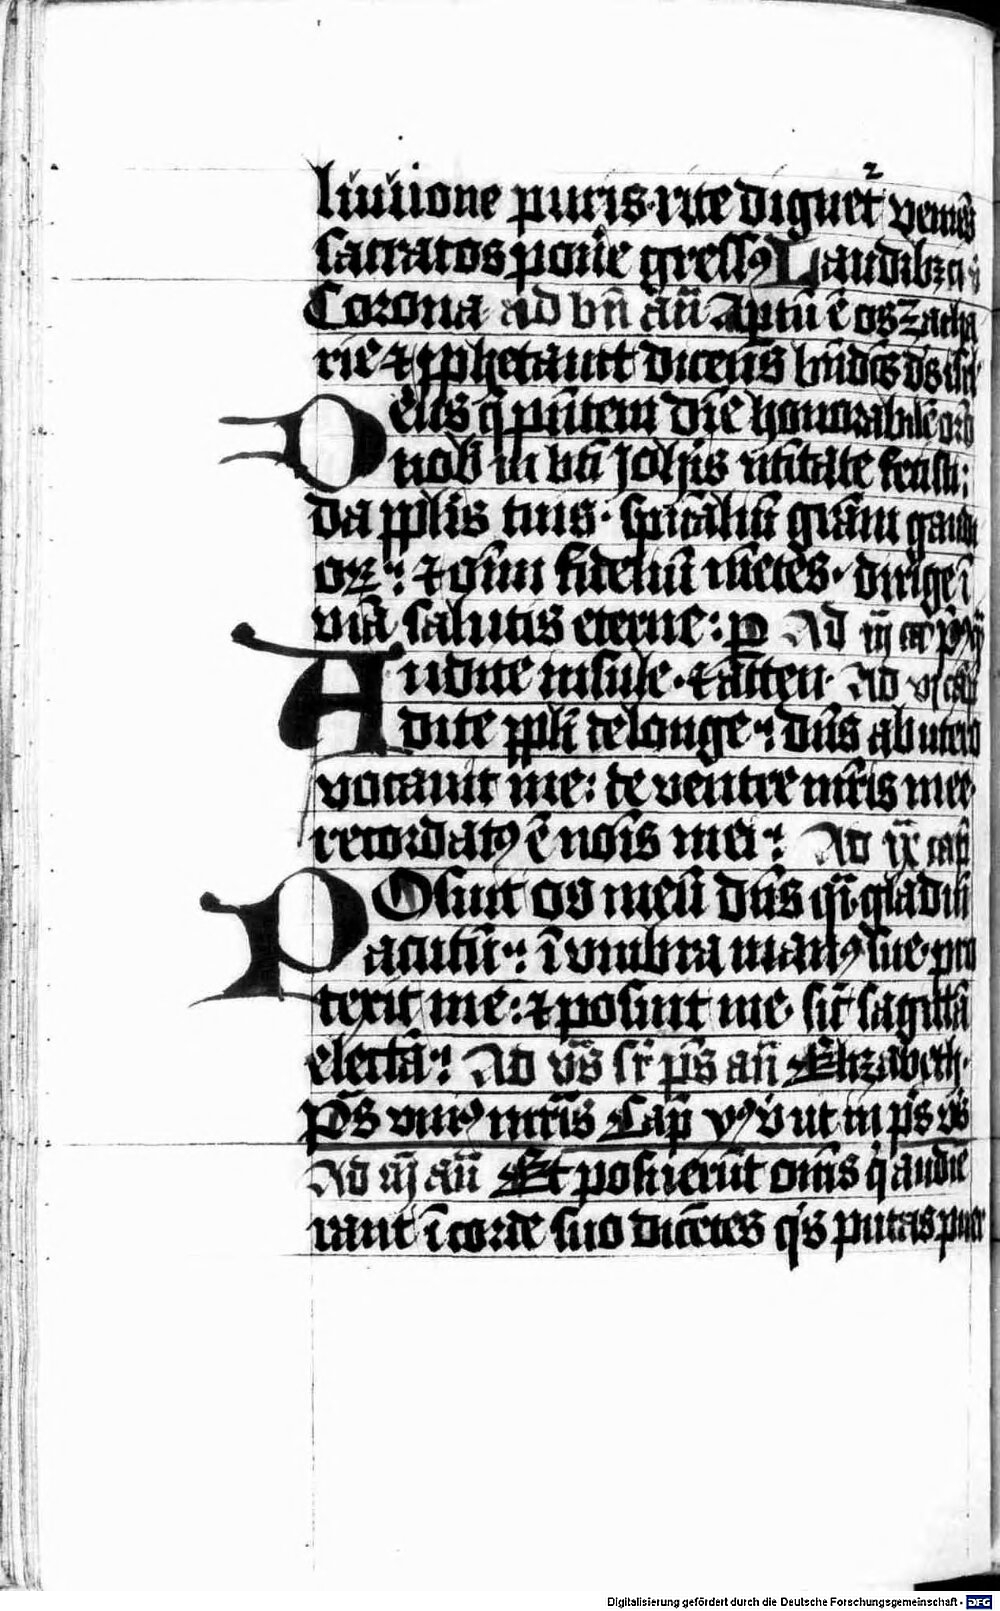 liuione puris · rite dignet᷑ veniēs
sacratos ponēe gressꝯ Laudibꝫ
Corona · ad bn̄ an̄ Aptū ē os zacha
rie ⁊ ꝓphetauit dicens bn̄dc̄s dn̄s isrl̄
Deus q̄ pn̄tem diē honorabilē
nob̄ in bt̄i Joh̄is natītate fecisti :
da pplīs tuis · sp̄ualiū grām gaudi
oꝝ : ⁊ om̄i fideliū mētes · dirige ī
viā salutis eterne : ꝑ Ad iij
Audite insule · ⁊ atten · Ad vj
dite ppl̄i de longe : dn̄s ab utero
vocauit me : de ventre mr̄is mee
recordatꝯ ē nōis mei : Ad ix cap̄
Posuit os meū dn̄s qͣi gladiū
acutū : ī vmbra manꝯ sue · pro
texit me : ⁊ posuit me · sic̄ sagittā
electā : Ad v̄s sr̄ p̄s an̄ Elizabeth ·
p̄s vniꝯ mr̄is Cap̄ yꝯ v̄ ut in p̄s v̄s
Ad m̄ an̄ Et posuerūt om̄s q̄ audie
rant ī corde suo dicētes q̄s putas puer
Digitalisierung gefördert durch die Deutsche Forschungsgemeinschaft - DFG